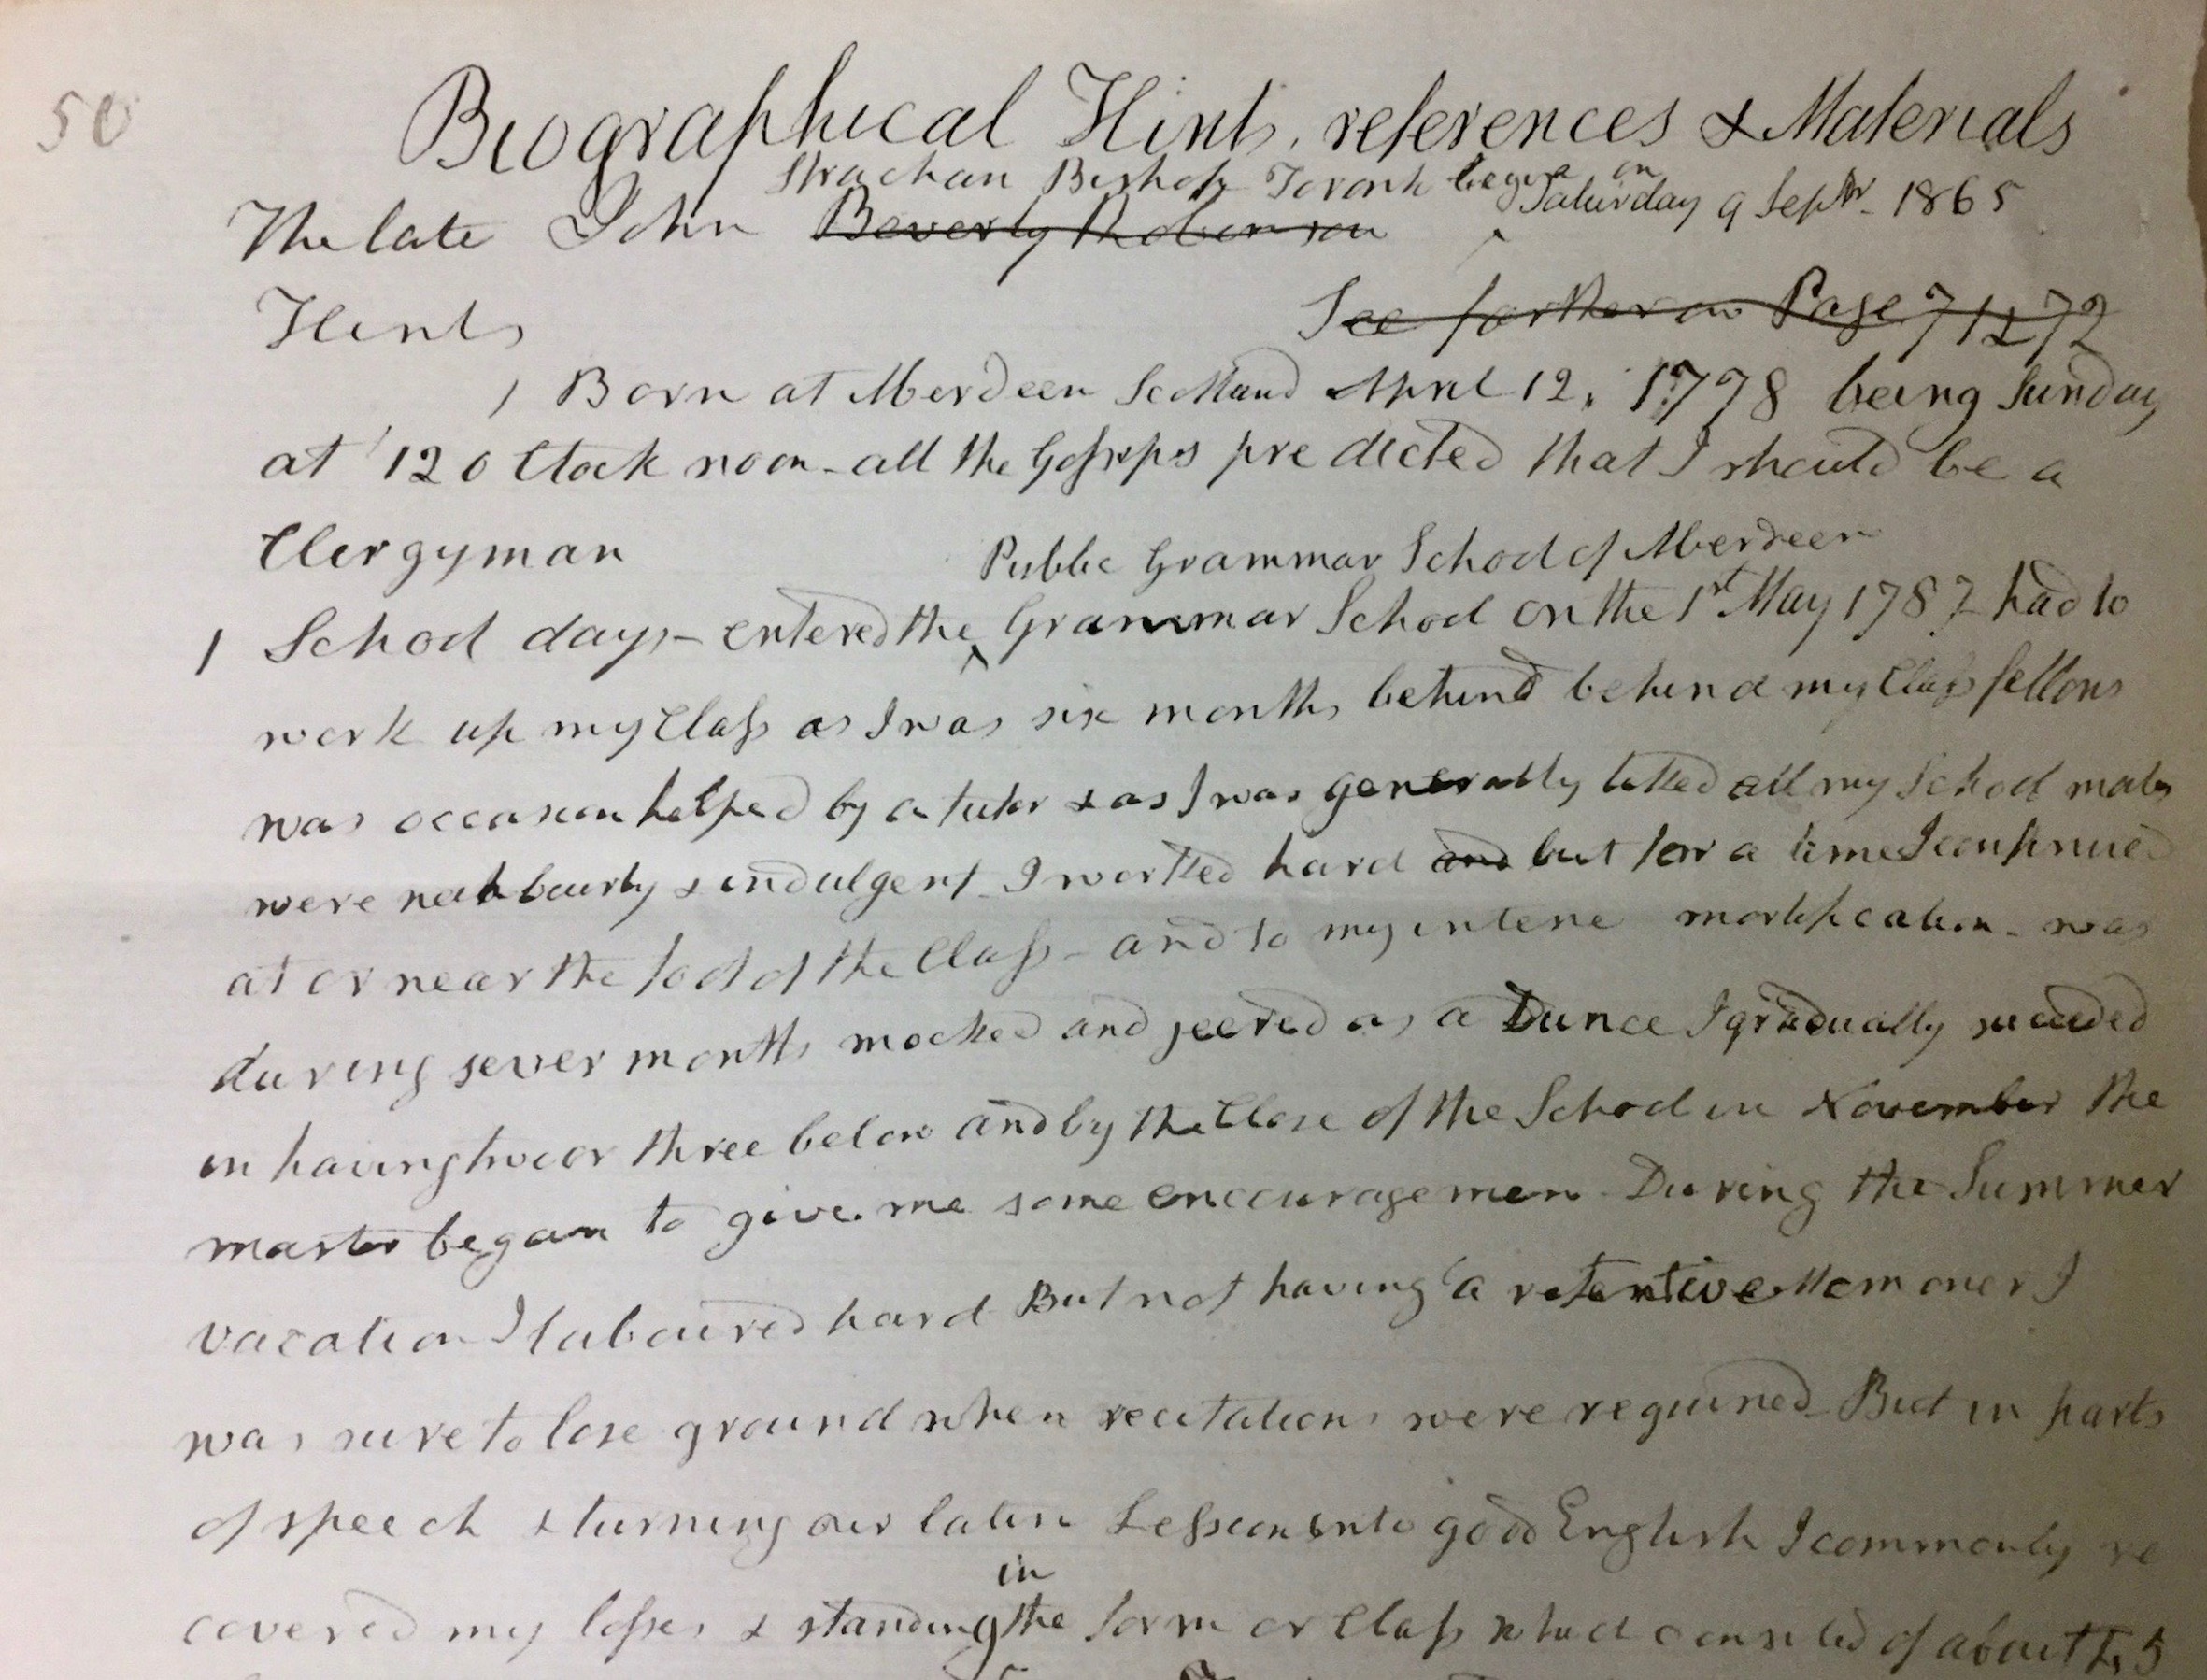 50
Biographical Hints, references & Materials
Strachan Bishop Toronto begun on Saturday 9 Septr. 1865
The late John Beverly Robinson
Hints
See farther on Page 71 & 72
1 Born at Aberdeen Scotland April 12, 1778 being Sunday
at 12 o Clock noon - all the Gossops predicted that I should be a
Clergyman
Public Grammar School of Aberdeen
1 School days - entered the Grammar School on the 1st May 1787 had to
work up my Class as I was six months behind behind my Class fellows
was occasion helped by a tutor & as I was generally liked all my School mates
were neihbourly & indulgent - I worked hard and but for a time I continued
at or near the foot of the Class - and to my intene mortification - was
during sever months mocked and jeered as a Dunce I gradually succeeded
in having two or three below and by the Close of the School in November the
master began to give me some encouragemen - During the Summer
vacation I laboured hard But not having a retentive I
was sure to lose ground when recitations were required - But in parts
of speech & turning our latin Lessons into good English I commonly re
in
covered my losses & standing the form or Class which consisted of about